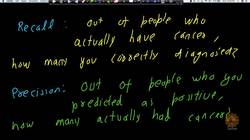 Recall : out of people who
actually have cancer,
how many you correctly diagnosed?
Precision: Out of people who you
predicted as positive,
how many actually had cancer?